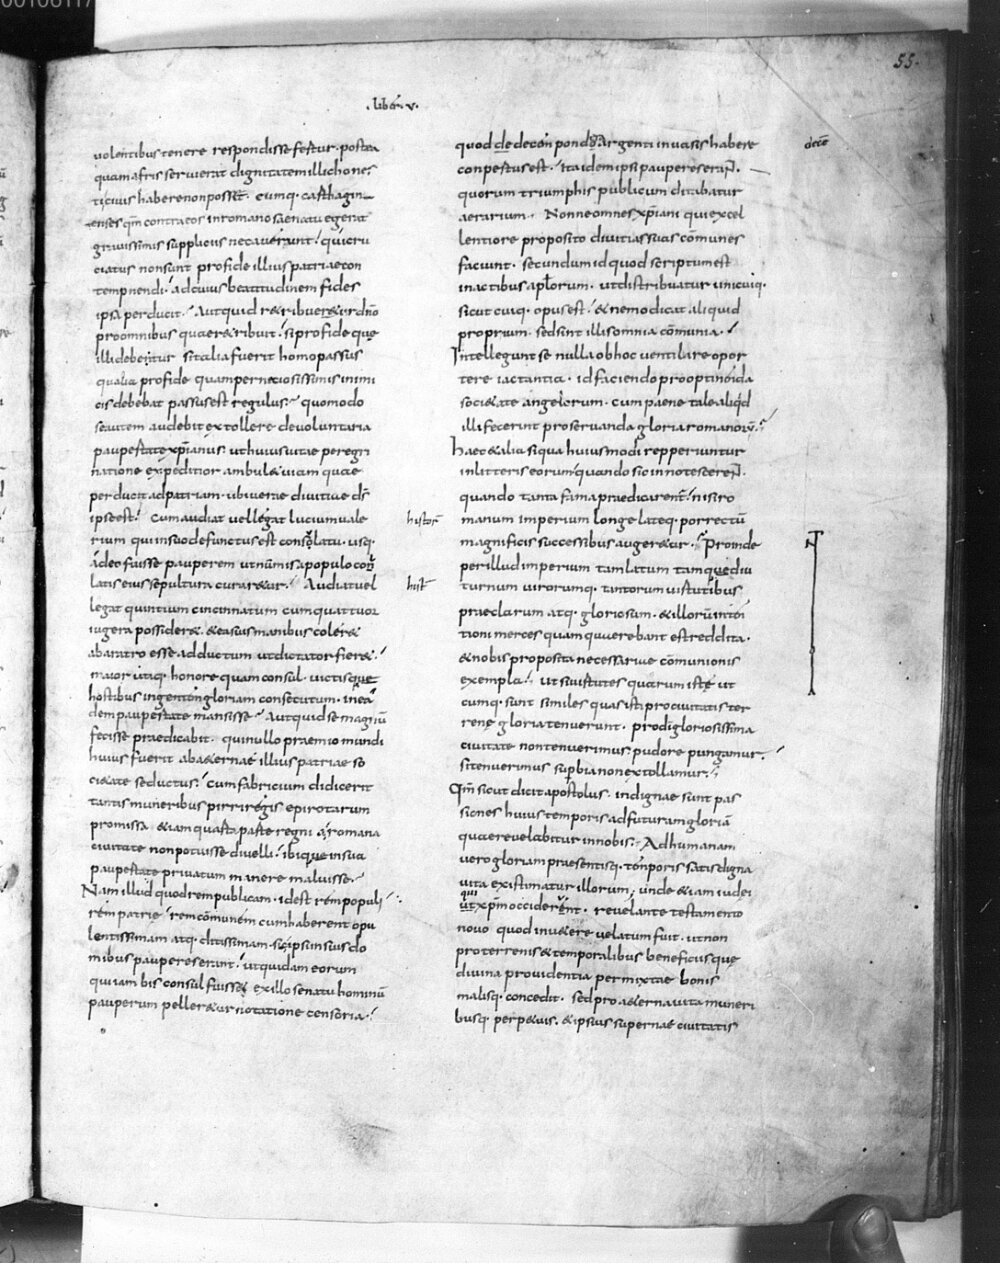 55.
.liber.v.
uolentibus tenere respondisse fertur. postea
quam afris seruierat dignitatem illic hones
ti ciuis habere non posset. cumq. carthagin
enses qm̄ contra eos in romano senatu egerat
grauissimis suppliciis necauerunt. qui cru
ciatus non sunt pro fide illius patriae con
temnendi. ad cuius beatitudinem fides
ipsa perducit. Aut quid retribuetur dn̄o
pro omnibus quae retribuit. si pro fide que
illi debetur si talia fuerit homo passus
qualia pro fide quam perniciosissimis inimi
cis debebat passus est regulus. quomodo
se autem audebit extollere de uoluntaria
paupertate xp̄ianus. ut huius uitae peregri
natione expeditior ambulet uiam quae
perducit ad patriam. ubi uerae diuitiae ds̄
ipse est. Cum audiat uel legat lucium uale
rium qui in suo defunctus est consolatu. usq.
adeo fuisse pauperem ut nummis a populo con
latis eius sepultura curaretur. Audiat uel
legat quintium cincinnatum cum quattuor
iugera possideret. & ea suis manibus coleret
ab aratro esse adductum ut dictator fieret.
maior utiq. honore quam consul. uictisque
hostibus ingentem gloriam consecutum. in ea
dem paupertate mansisse. Aut quid se magnū
fecisse praedicabit. qui nullo praemio mundi
huius fuerit ab aeternae illius patriae so
cietate seductus. Cum fabricium didicerit
tantis muneribus pirri regis epirotarum
promissa etiam quarta parte regni a romana
ciuitate non potuisse diuelli. ibique in sua
paupertate priuatum manere maluisse.
Nam illud quod rem publicam. id est rem populi
rem patriae rem cōmunem cum haberent opu
lentissimam atq. ditissimam. sic ipsi in suis do
mibus pauperes erant. ut quidam eorum
qui iam bis consul fuisset. ex illo senatu hominū
pauperum pelleretur notatione censoria.
histor̄
hist̄
quod decem pondo argenti in uasis habere
conpertus est. Ita idem ipsi pauperes erant.
quorum triumphis publicum ditabatur
aerarium. Nonne omnes xp̄iani qui excel
lentiore proposito diuitias suas cōmunes
faciunt. secundum id quod scriptum est
in actibus aplorum. ut distribuatur unicuiq.
sicut cuiq. opus est. & nemo dicat aliquid
proprium. sed sint illis omnia cōmunia.
Intellegunt se nulla ob hoc uentilare opor
tere iactantia. id faciendo pro optinenda
societate angelorum. cum paene tale aliqd
illi fecerint pro seruanda gloria romanorū.
Haec & alia si qua huiusmodi repperiuntur
in litteris eorum quando sic innotescerent.
quando tanta fama praedicarentur nisi ro
manum imperium longe lateq. porrectū
magnificis successibus augeretur. Proinde
per illud imperium tam latum tamque diu
turnum uirorumq. tantorum uirtutibus
praeclarum atq. gloriosum. & illorū inten
tioni merces quam quaerebant est reddita.
& nobis proposita necessariae cōmunionis
exempla. ut si uirtutes quarum iste ut
cumq. sunt similes quas isti pro ciuitatis ter
rene gloria tenuerunt. pro dī gloriosissima
ciuitate non tenuerimus pudore pungamur.
si tenuerimus superbia non extollamur.
Qm̄ sicut dicit apostolus. indignae sunt pas
siones huius temporis ad futuram gloriā
quae reuelabitur in nobis. Ad humanam
uero gloriam praesentisq. temporis satis digna
uita existimatur illorum. unde etiam iudei
qui xp̄m occiderunt. reuelante testamento
nouo quod in uetere uelatum fuit. ut non
pro terrenis & temporalibus beneficiis que
diuina prouidentia permixtae bonis
malisq. concedit. sed pro aeterna uita muneri
busq. perpetuis. & ipsius supernae ciuitatis